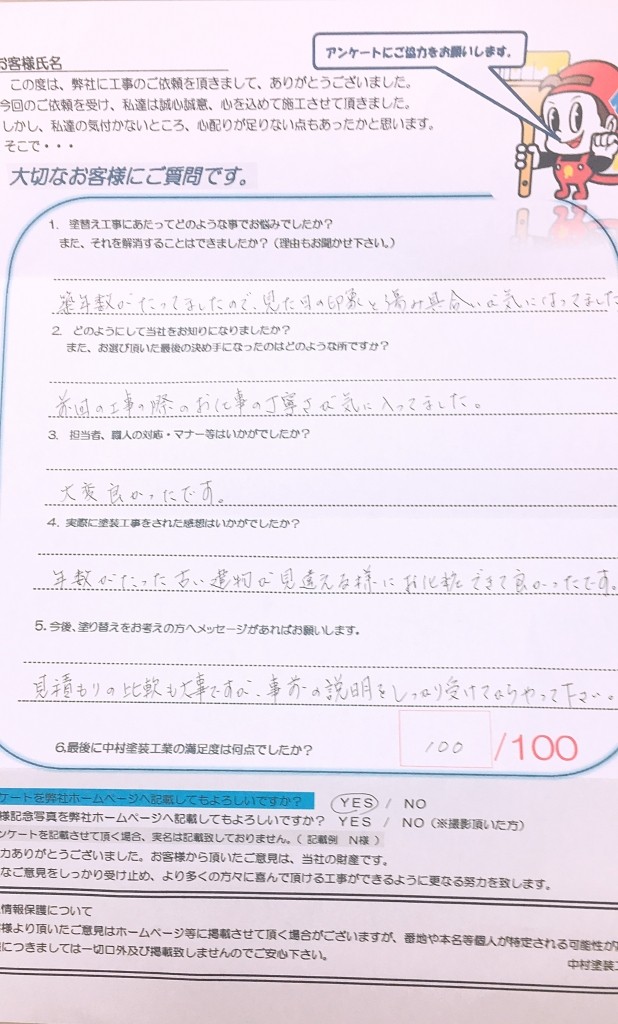 アンケートにご協力をお願いします。
お客様氏名
この度は、弊社に工事のご依頼を頂きまして、ありがとうございました。
今回のご依頼を受け、私達は誠心誠意、心を込めて施工させて頂きました。
しかし、私達の気付かないところ、心配りが足りない点もあったかと思います。
そこで・・・
大切なお客様にご質問です。
1. 塗替え工事にあたってどのような事でお悩みでしたか?
また、それを解消することはできましたか?(理由もお聞かせ下さい。)
築年数がたってましたので、見た目の印象と傷み具合いが気になってました
2. どのようにして当社をお知りになりましたか?
また、お選び頂いた最後の決め手になったのはどのような所ですか?
前回の工事の際のお仕事の丁寧さが気に入ってました。
3. 担当者、職人の対応・マナー等はいかがでしたか?
大変良かったです。
4. 実際に塗装工事をされた感想はいかがでしたか?
年数がたった古い建物が見違える様にお化粧できて良かったです。
5. 今後、塗り替えをお考えの方へメッセージがあればお願いします。
見積もりの比較も大事ですが、事前の説明をしっかり受けてからやって下さい。
6.最後に中村塗装工業の満足度は何点でしたか?
100 /100
ケートを弊社ホームページへ記載してもよろしいですか? YES / NO
様記念写真を弊社ホームページへ記載してもよろしいですか? YES / NO(※撮影頂いた方)
ンケートを記載させて頂く場合、実名は記載致しておりません。(記載例 N様)
力ありがとうございました。お客様から頂いたご意見は、当社の財産です。
なご意見をしっかり受け止め、より多くの方々に喜んで頂ける工事ができるように更なる努力を致します。
情報保護について
様より頂いたご意見はホームページ等に掲載させて頂く場合がございますが、番地や本名等個人が特定される可能性が
につきましては一切口外及び掲載致しませんのでご安心下さい。
中村塗装工